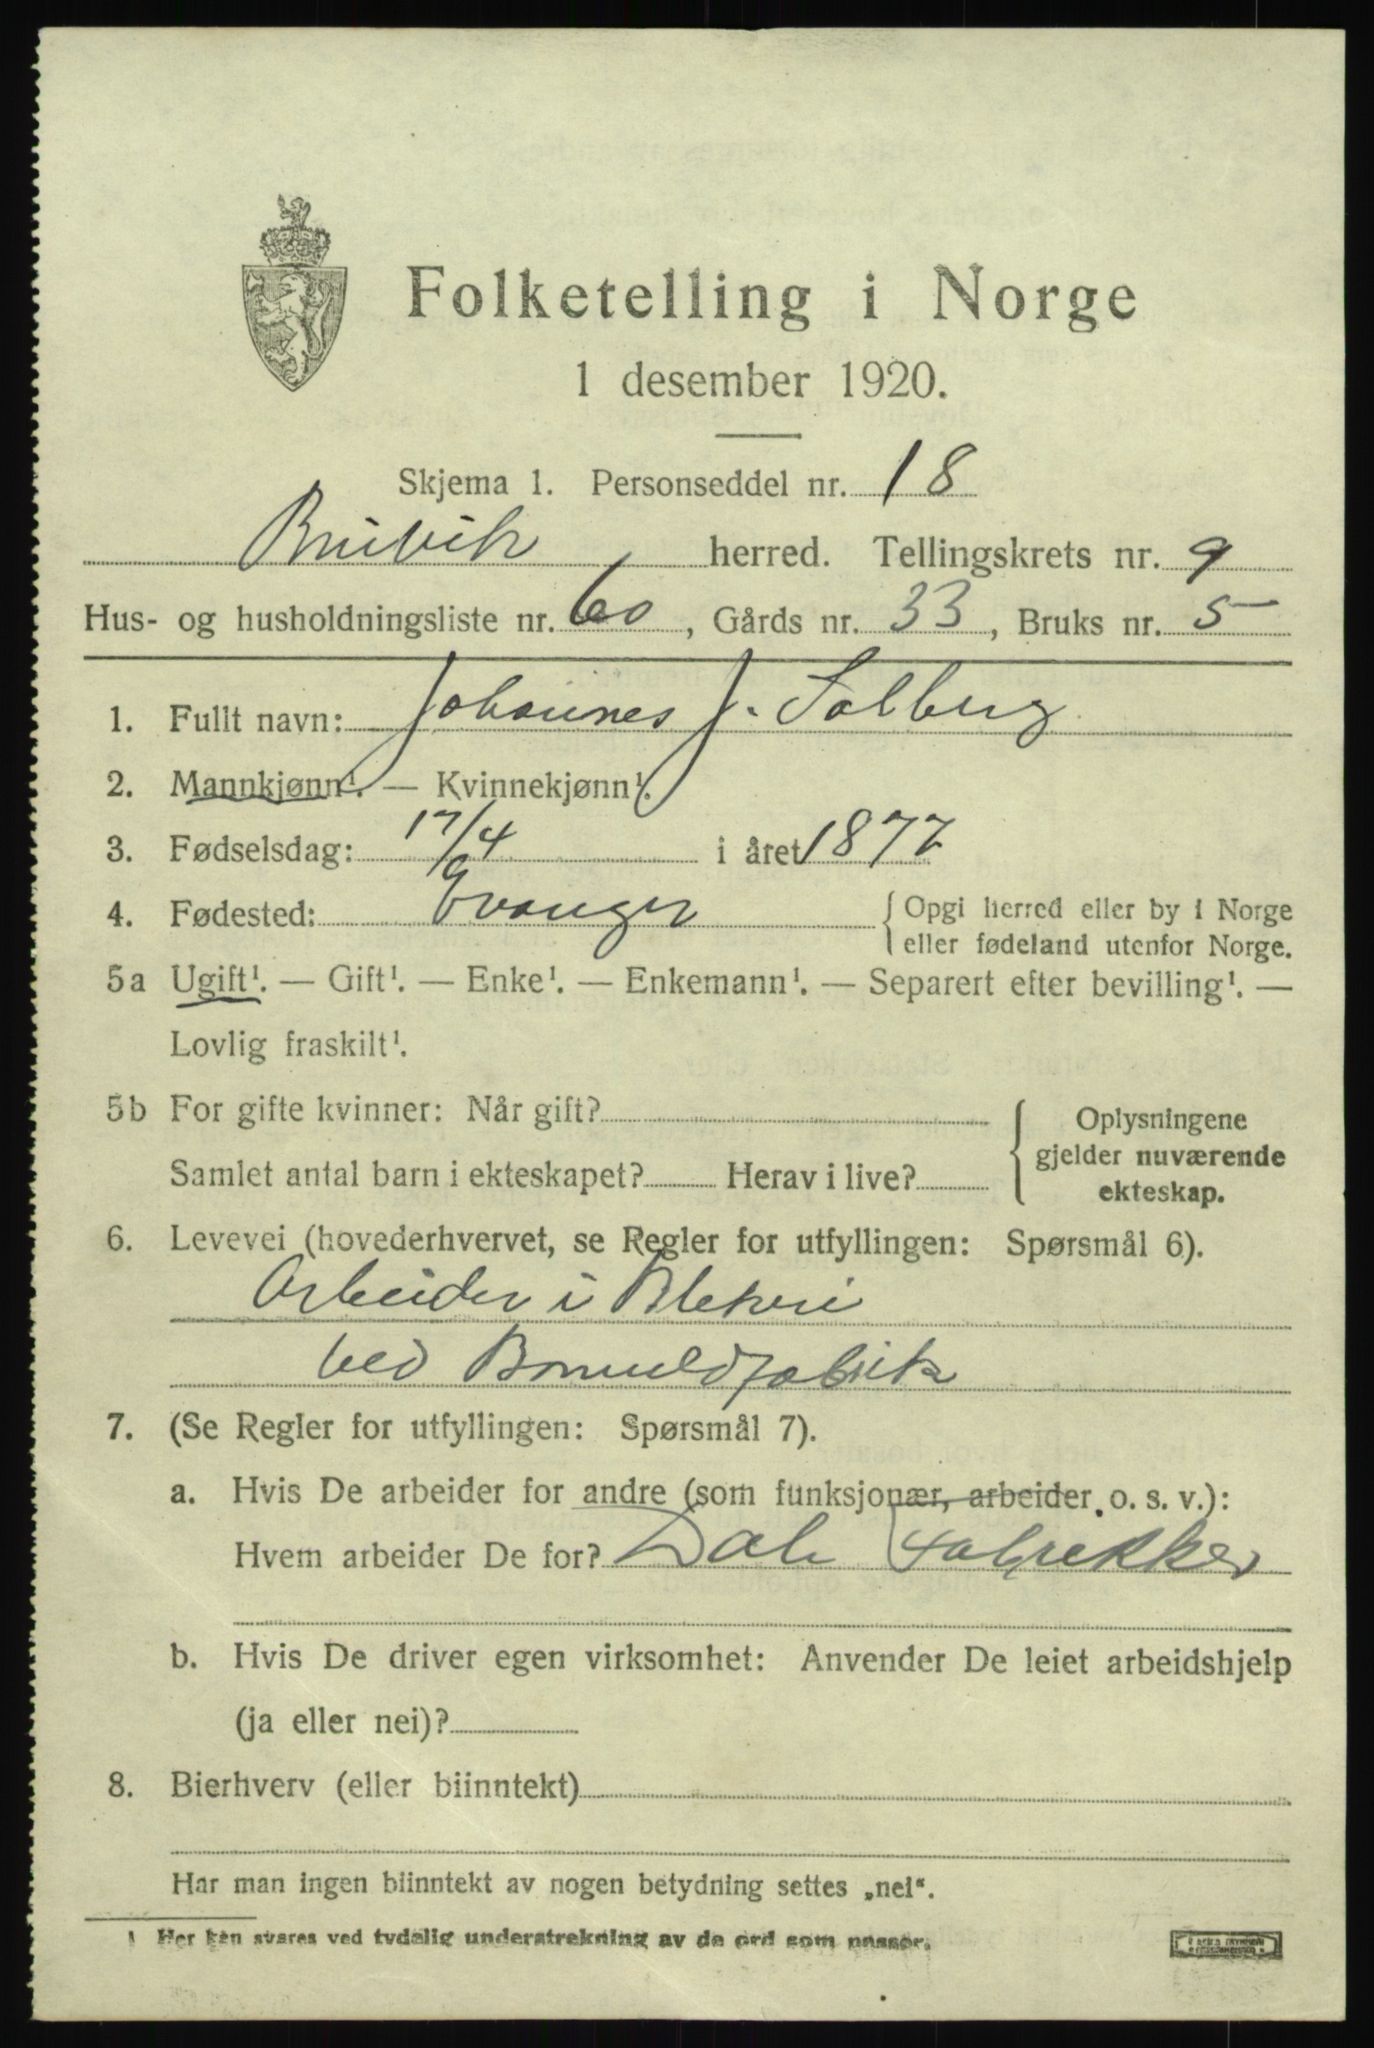 Folketelling i Norge
1 desember 1920.
Skjema 1. Personseddel nr. 18
Bruvik herred. Tellingskrets nr. 9
Hus- og husholdningsliste nr. 60, Gårds nr. 33, Bruks nr. 5
1. Fullt navn: Johannes J. Solberg
2. Mannkjønn¹. — Kvinnekjønn¹.
3. Fødselsdag: 17/4 i året 1877
4. Fødested: Evanger { Opgi herred eller by i Norge
eller fødeland utenfor Norge.
5a Ugift¹. — Gift¹. — Enke¹. — Enkemann¹. — Separert efter bevilling¹. —
Lovlig fraskilt¹.
5b For gifte kvinner: Når gift? { Oplysningene
gjelder nuværende
Samlet antal barn i ekteskapet? Herav i live?
ekteskap.
6. Levevei (hovederhvervet, se Regler for utfyllingen: Spørsmål 6).
Arbeider i Blekeri
ved Bomuldfabrik
7. (Se Regler for utfyllingen: Spørsmål 7).
a. Hvis De arbeider for andre (som funksjonær, arbeider o. s. v.):
Hvem arbeider De for? Dale Fabrikker
b. Hvis De driver egen virksomhet: Anvender De leiet arbeidshjelp
(ja eller nei)?
8. Bierhverv (eller biinntekt)
Har man ingen biinntekt av nogen betydning settes „nei“.
1 Her kan svares ved tydelig understrekning av de ord som passer.